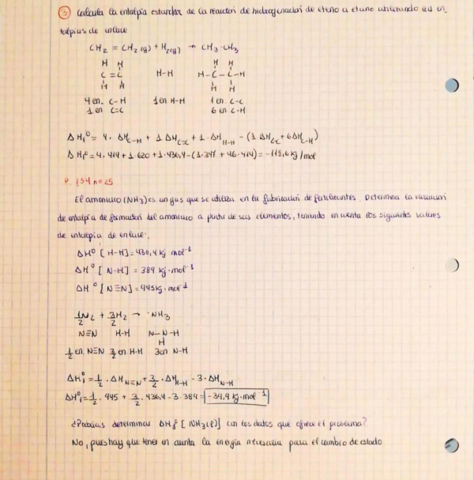 ⑤ Calcula la entalpía estandar de la reacción de hidrogenación de eteno a etano utilizando las en
talpías de enlace
CH2 = CH2 (g) + H2(g) → CH3-CH3
H H H H
C = C H-H H-C-C-H
H H H H
4 en. C-H 1 en H-H 1 en C-C
1 en C=C 6 en C-H
ΔH1º = 4 · ΔHC-H + 1 ΔHC=C + 1 · ΔHH-H - (1 ΔHC-C + 6 ΔHC-H)
ΔH1º = 4 · 414 + 1 · 620 + 1 · 436,4 - (1 · 347 + 6 · 414) = -118,6 kJ/mol
P. 154 n=25
El amoniaco (NH3) es un gas que se utiliza en la fabricación de fertilizantes. Determina la variación
de entalpía de formación del amoniaco a partir de sus elementos, teniendo en cuenta los siguientes valores
de entalpía de enlace:
ΔHº [H-H] = 436,4 kJ·mol-1
ΔHº [N-H] = 384 kJ·mol-1
ΔHº [N≡N] = 945 kJ·mol-1
1/2 N2 + 3/2 H2 → NH3
N≡N H-H N-N-H
H
1/2 en. N≡N 3/2 en H-H 3 en N-H
ΔH1º = 1/2 · ΔHN≡N + 3/2 · ΔHH-H - 3 · ΔHN-H
ΔH1º = 1/2 · 945 + 3/2 · 436,4 - 3 · 384 = -34,9 kJ·mol-1
¿Podrías determinar ΔHfº [NH3(l)] con los datos que ofrece el problema?
No, pues hay que tener en cuenta la energía necesaria para el cambio de estado